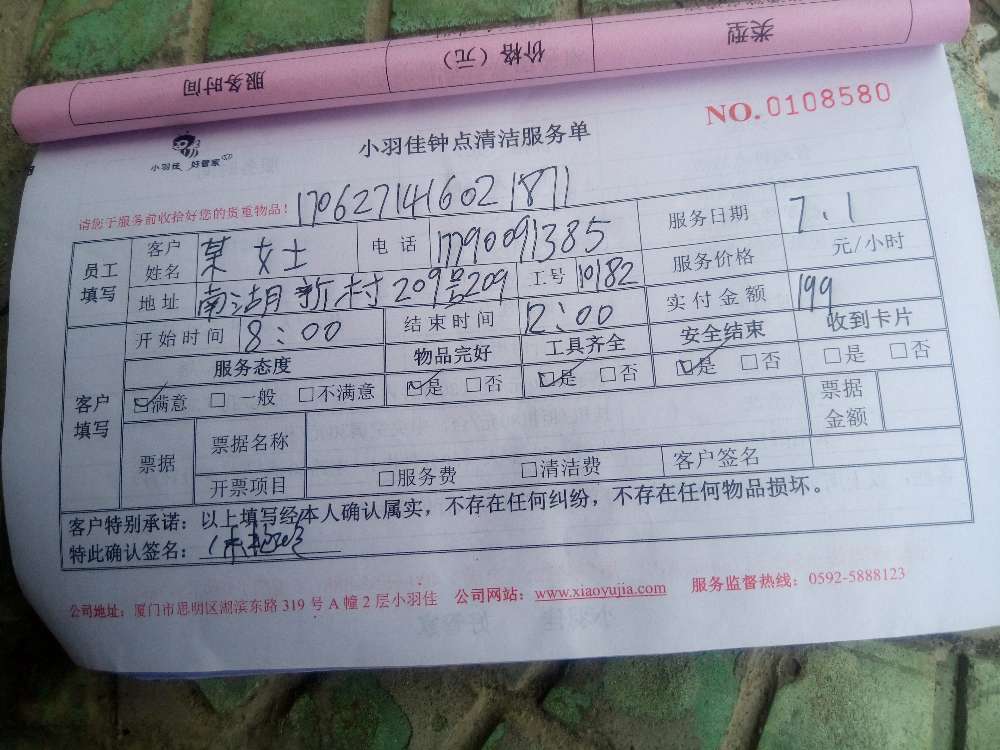 服务时间 价格（元） 类型
NO.0108580
小羽佳 好管家
小羽佳钟点清洁服务单
请您于服务前收拾好您的贵重物品！ 1706271416021871
员工填写 客户姓名 某女士 电话 17790091385 服务日期 7.1
地址 南湖新村209号209 工号 10182 服务价格 元/小时
客户填写 开始时间 8:00 结束时间 12:00 实付金额 199
服务态度 物品完好 工具齐全 安全结束 收到卡片
☑满意 □一般 □不满意 ☑是 □否 ☑是 □否 ☑是 □否 □是 □否
票据 票据名称 票据金额
开票项目 □服务费 □清洁费 客户签名
客户特别承诺：以上填写经本人确认属实，不存在任何纠纷，不存在任何物品损坏。
特此确认签名：
公司地址：厦门市思明区湖滨东路 319 号 A 幢 2 层小羽佳 公司网站：www.xiaoyujia.com 服务监督热线：0592-5888123